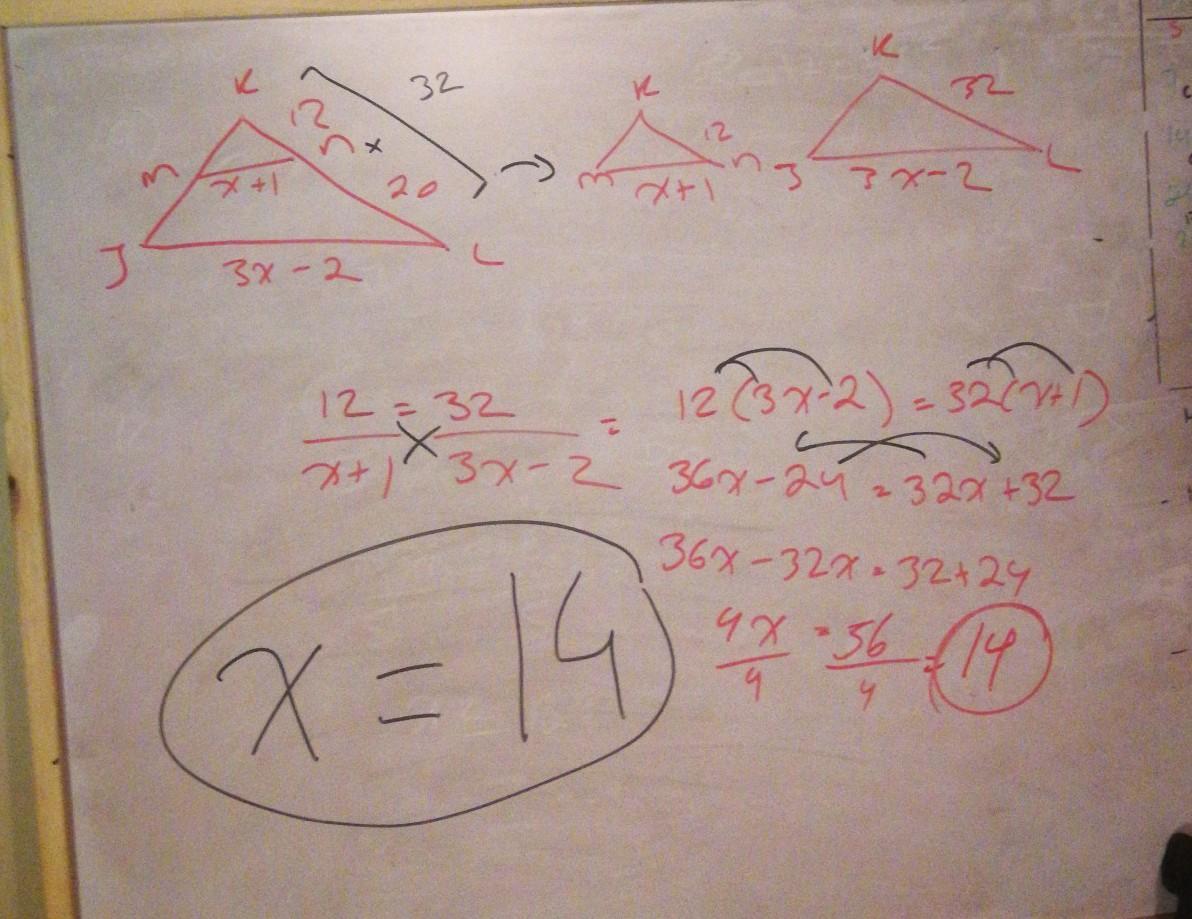 K
12
32
n x
m
x+1
20
J
3x-2
L
K
12
m
x+1
n
K
32
J
3x-2
L
12 = 32 =
x+1 3x-2
12(3x-2) = 32(x+1)
36x-24 = 32x+32
36x-32x=32+24
4x = 56 = 14
4 4
x = 14